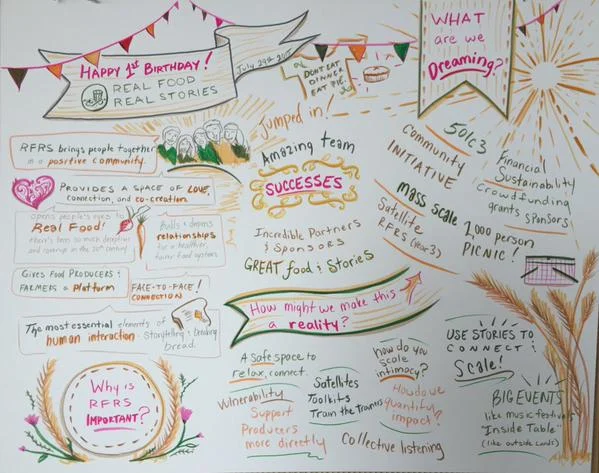 HAPPY 1st BIRTHDAY!
REAL FOOD
REAL STORIES
July 29th 2015
DON'T EAT
DINNER
EAT PIE.
WHAT
are we
Dreaming?
RFRS brings people together
in a positive community.
PROVIDES A SPACE OF LOVE,
connection, and co-creation.
opens people's eyes to
Real Food!
there's been so much deception
and coverup in the 20th century
Builds & deepens
relationships
for a healthier,
fairer food system
GIVES FOOD PRODUCERS &
FARMERS a Platform
FACE-TO-FACE!
CONNECTION
The most essential elements of
human interaction - Storytelling & breaking
bread.
Why is
RFRS
IMPORTANT?
Jumped in!
Amazing team
SUCCESSES
Incredible Partners
& Sponsors
GREAT food & Stories
Community
INITIATIVE
501C3
Financial
Sustainability
Crowdfunding
grants sponsors
mass scale
1,000 person
PICNIC!
Satellite
RFRS (year 3)
How might we make this
a reality?
A Safe space to
relax, connect.
Vulnerability
Support
Producers
more directly
Satellites
Toolkits
Train the Trainers
how do you
scale
intimacy?
How do we
quantify
impact?
Collective listening
USE STORIES TO
CONNECT &
Scale!
BIG EVENTS
like music festivals
"Inside Table"
(like outside lands)